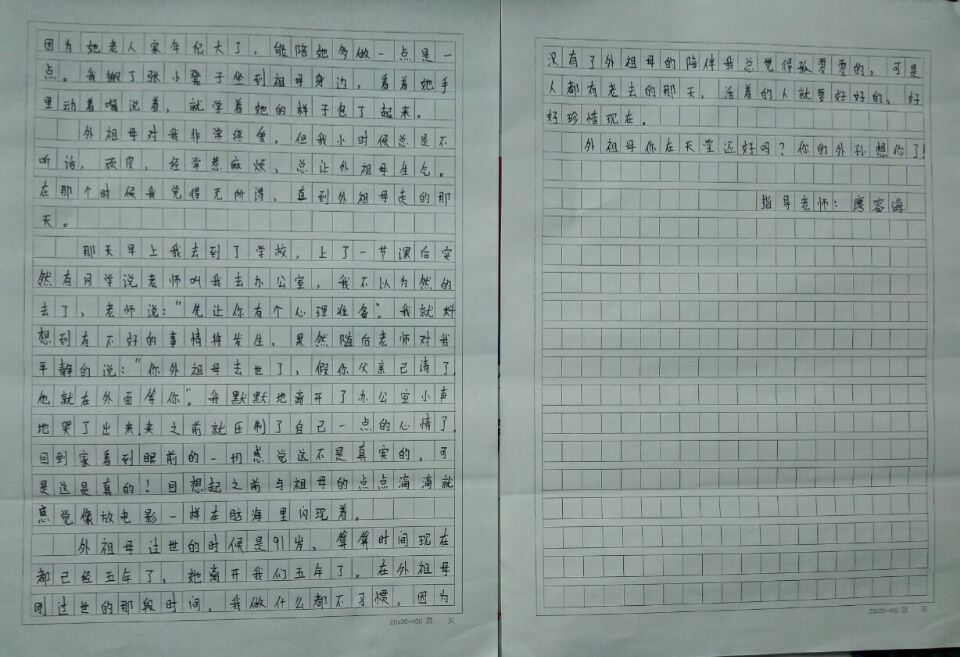 因为她老人家年纪大了，能陪她多做一点是一
点。我搬了张小凳子坐到祖母身边，看着她手
里动着嘴说着，就学着她的样子包了起来。
外祖母对我非常疼爱，但我小时候总是不
听话，顽皮，经常惹麻烦，总让外祖母生气。
在那个时候我觉得无所谓，直到外祖母走的那
天。
那天早上我去到了学校，上了一节课后突
然有同学说老师叫我去办公室，我不以为然的
去了，老师说：“先让你有个心理准备”。我就
想到有不好的事情将发生，果然随后老师对我
平静的说：“你外祖母去世了，假你父亲已请了，
他就在外面等你”。我默默地离开了办公室小声
地哭了出来，来之前就压制了自己一点的心情了，
回到家看到眼前的一切感觉这不是真实的，可
是这是真的！回想起之前与祖母的点点滴滴就
感觉像放电影一样在脑海里闪现着。
外祖母过世的时候是91岁，算算时间现在
都已经五年了，她离开我们五年了。在外祖母
刚过世的那段时间，我做什么都不习惯，因为
20x20=400 第 页
没有了外祖母的陪伴我总觉得孤零零的，可是
人都有老去的那天，活着的人就要好好的，好
好珍惜现在。
外祖母你在天堂还好吗？你的外孙想你了！
指导老师：廖容海
20x20=400 第 页